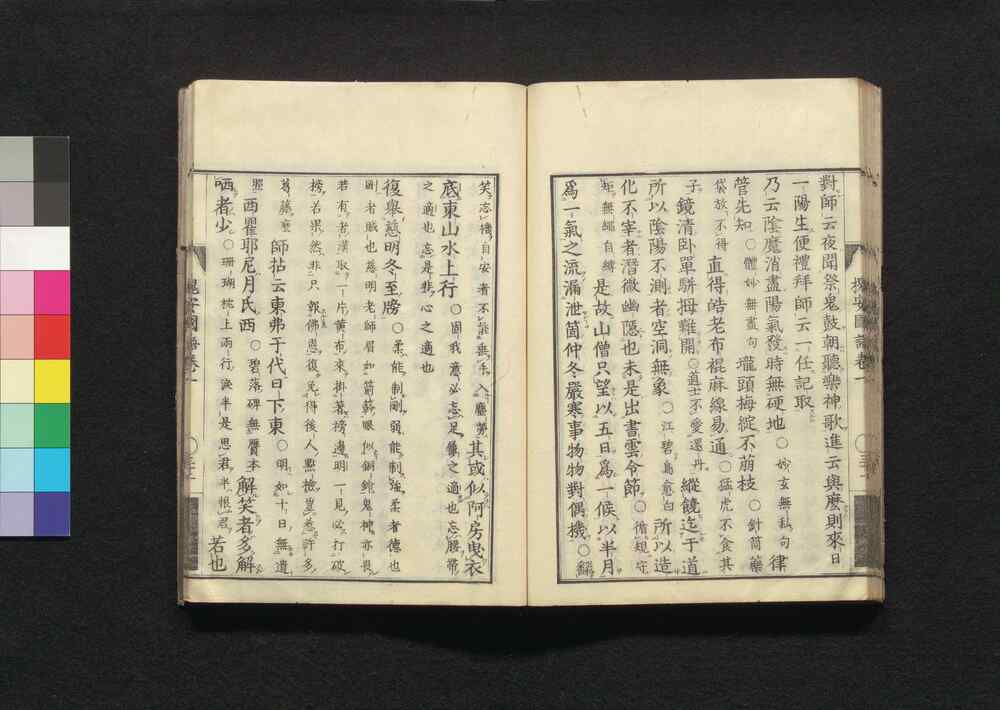 對師云夜聞祭鬼鼓朝聽樂神歌進云與麼則來日
一陽生便禮拜師云一任記取
乃云陰魔消盡陽氣發時無硬地○妙玄無私句律
管先知○體妙無盡句壠頭梅綻不萠枝○針筒藥
袋放不得直得皓老布裩麻線易通○猛虎不食其
子鏡清卧單駢拇難開○道士不愛還丹縱饒迄于道
所以陰陽不測者空洞無象○江碧鳥愈白所以造
化不宰者潛微幽隱也未是出書雲令節○循規守
矩無繩自縛是故山僧只望以五日爲一候以半月
爲一氣之流漏泄箇仲冬嚴寒事物物對偶機○
槐安國語卷一
笑忘機自安者不能垂手入鄽其或似阿房曳衣
底東山水上行○固我意必忘足履之適也忘腰帶
之適也忘是非心之適也
復舉慈明冬至牓○柔能制剛弱能制強柔者德也
剛者賊也慈明老師眉如箭簳眼似銅鈴鬼神亦畏
若有者漢取一片黄布來掛著榜邊明一見必打破
榜若果然非只報佛恩復免得後人點檢豈惹許多
葛藤麼師拈云東弗于代日下東○明如十日無遺
照西瞿耶尼月氏西○碧落碑無贋本解笑者多解
哂者少○珊瑚枕上兩行淚半是思君半恨君若也
槐安國語卷一